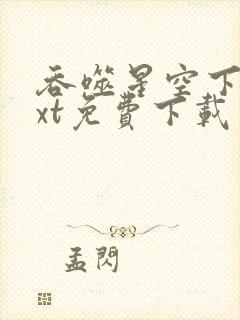 吞噬星空下
xt免費下載
孟閃